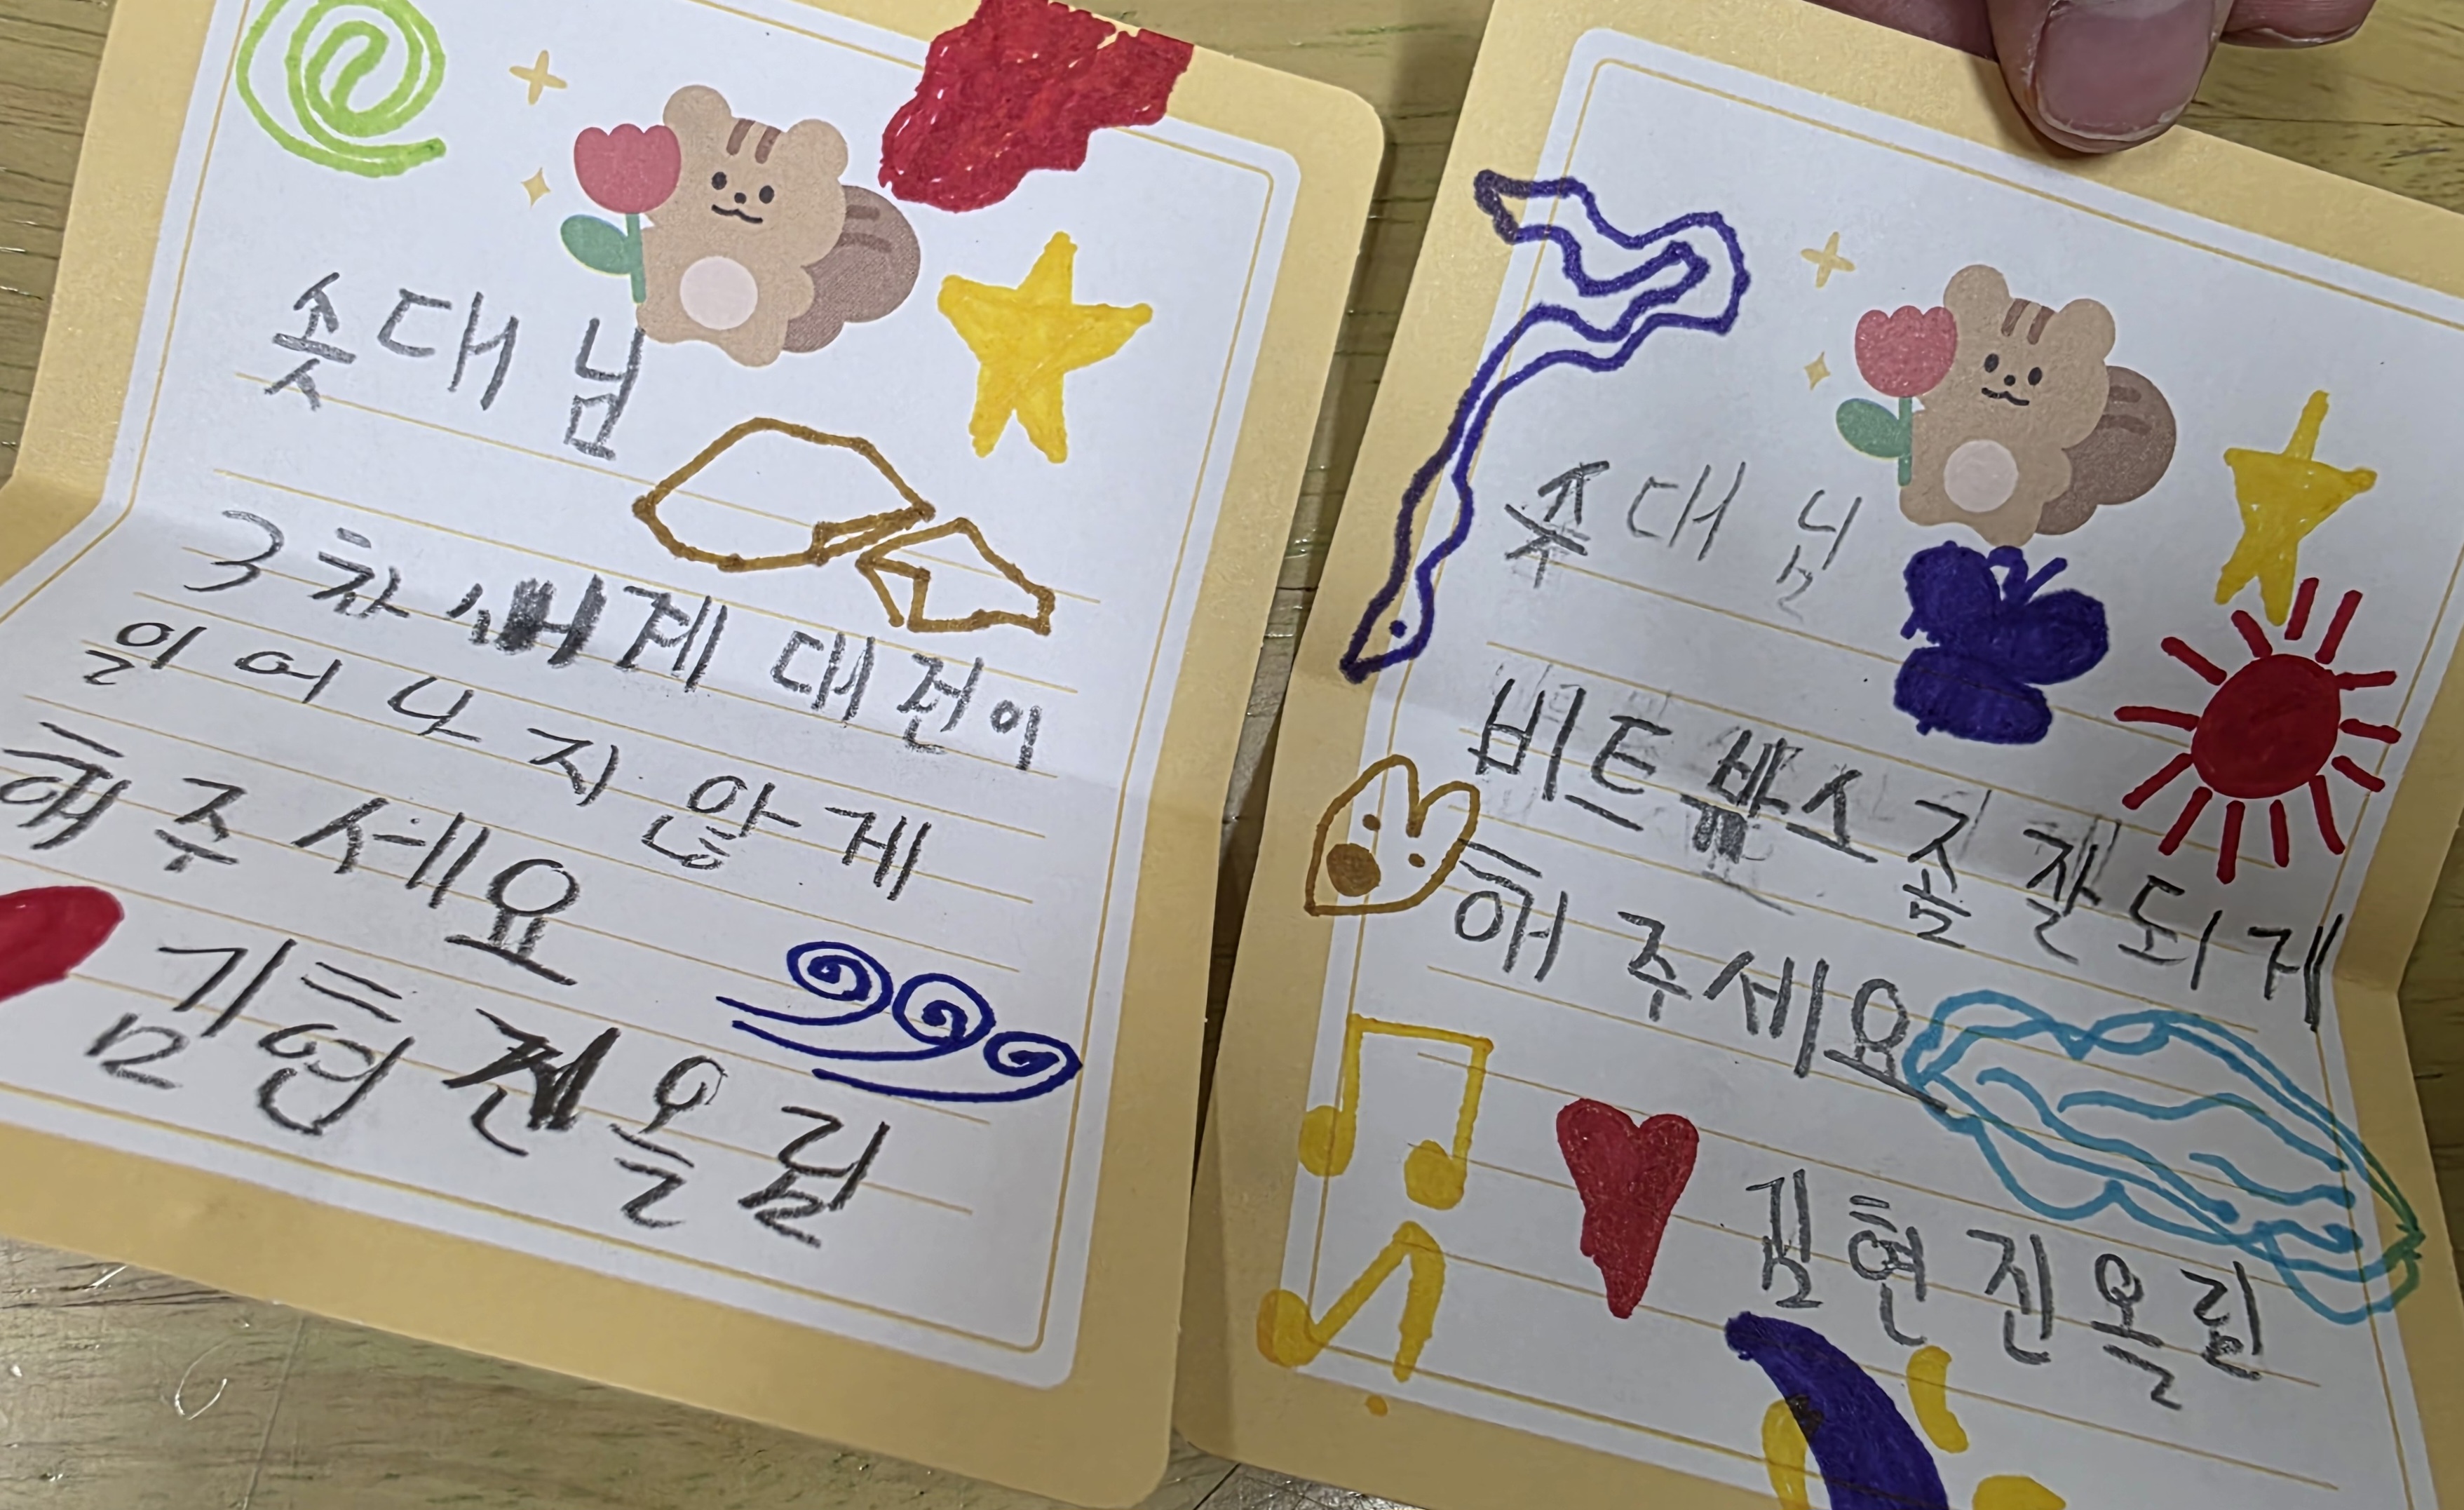 촛대님
3차 세계 대전이
일어나지 않게
해주세요
김현진 올림
촛대님
비트박스 좀 잘 되게
해주세요
김현진 올림